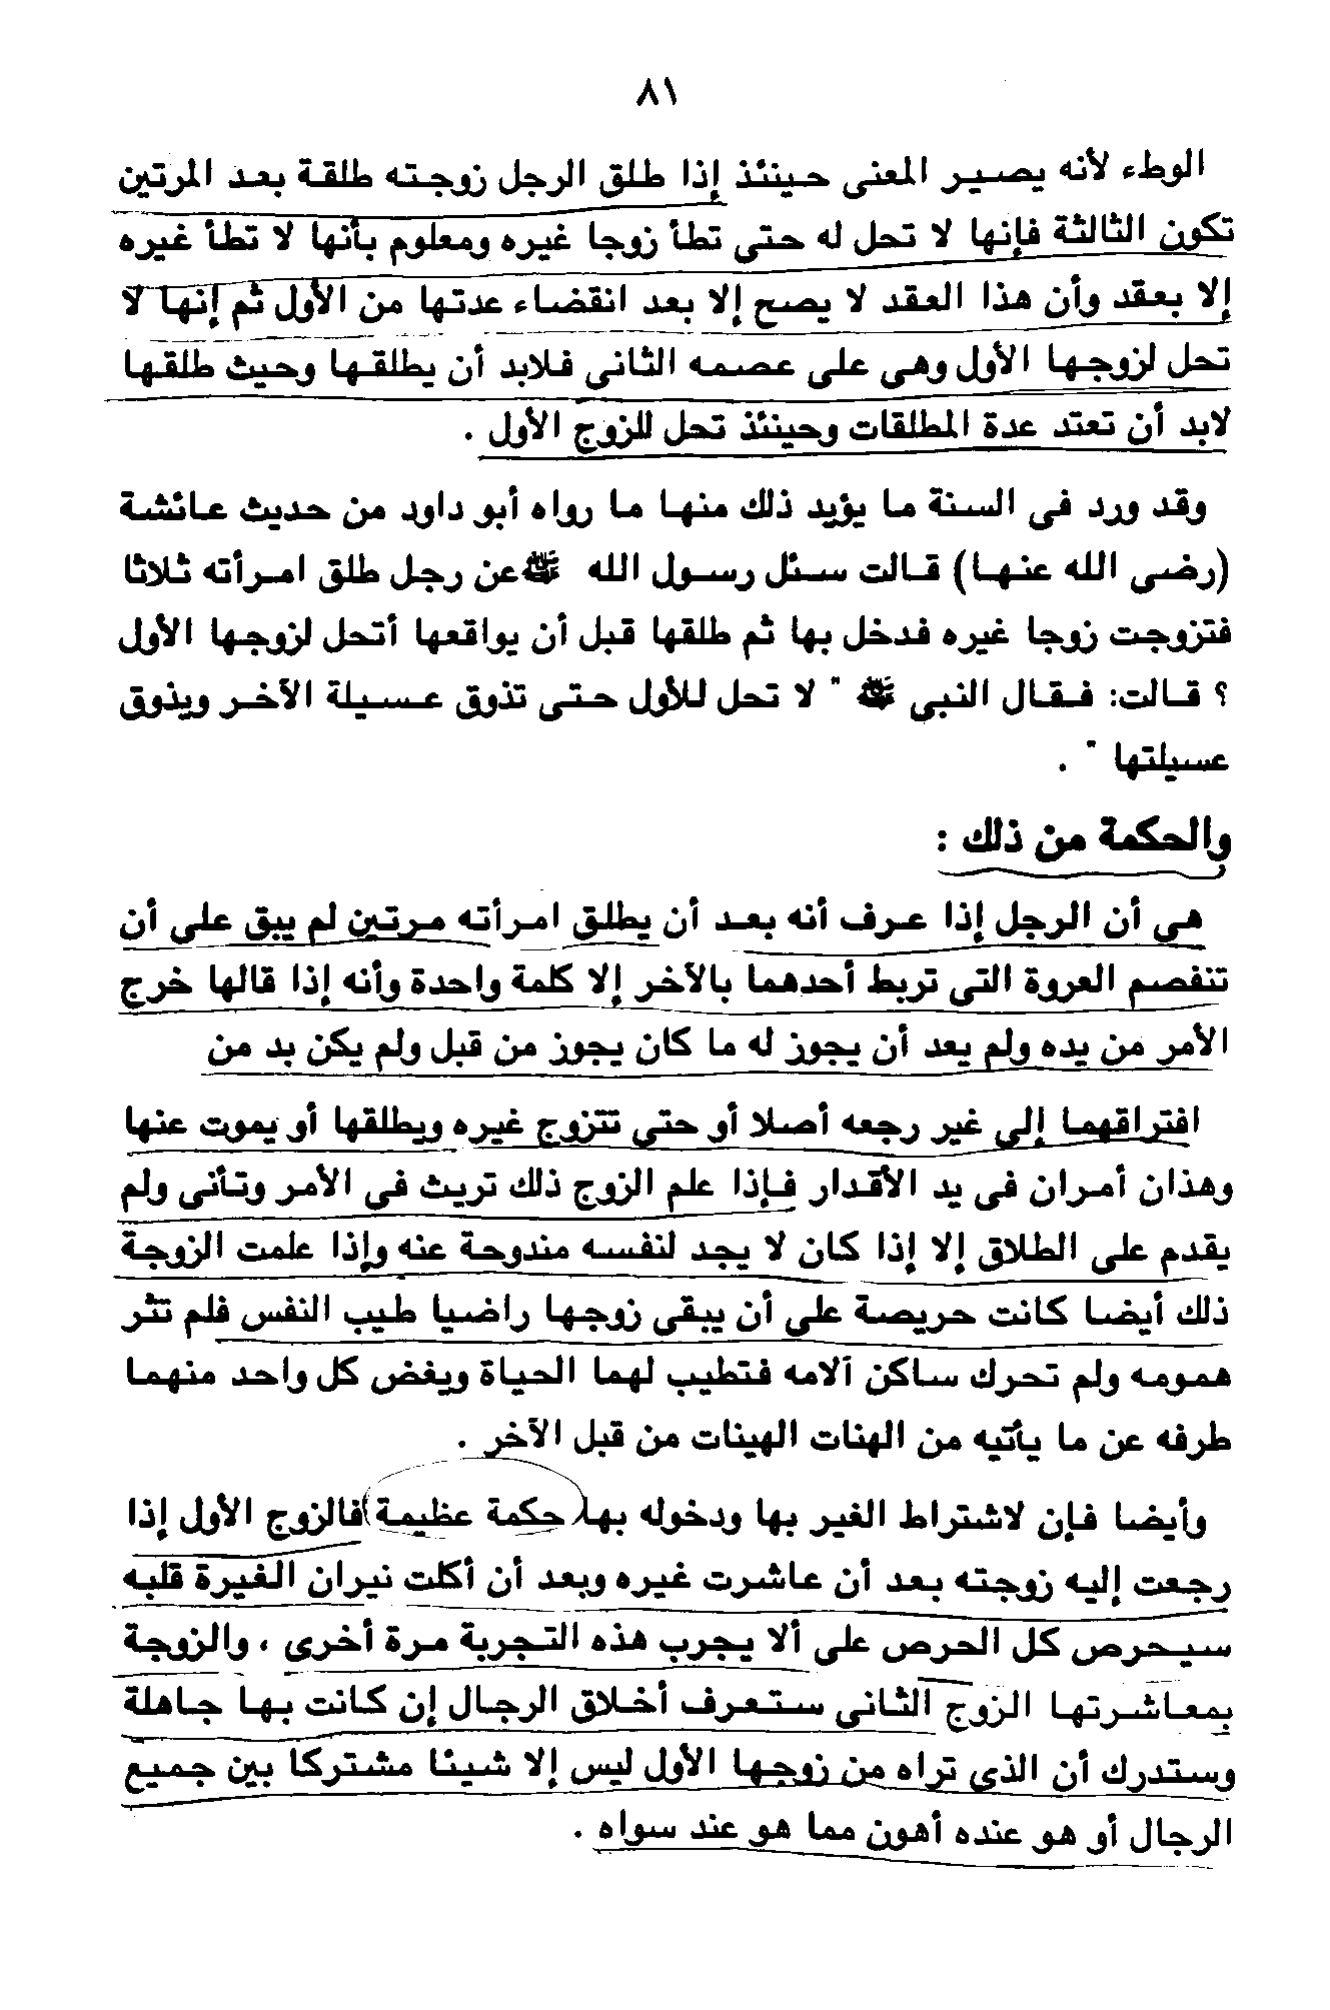 ٨١
الوطء لأنه يصير المعنى حينئذ إذا طلق الرجل زوجته طلقة بعد المرتين
تكون الثالثة فإنها لا تحل له حتى تطأ زوجا غيره ومعلوم بأنها لا تطأ غيره
إلا بعقد وأن هذا العقد لا يصح إلا بعد انقضاء عدتها من الأول ثم إنها لا
تحل لزوجها الأول وهى على عصمه الثانى فلابد أن يطلقها وحيث طلقها
لابد أن تعتد عدة المطلقات وحينئذ تحل للزوج الأول .
وقد ورد فى السنة ما يؤيد ذلك منها ما رواه أبو داود من حديث عائشة
(رضى الله عنها) قالت سئل رسول الله ﷺ عن رجل طلق امرأته ثلاثا
فتزوجت زوجا غيره فدخل بها ثم طلقها قبل أن يواقعها أتحل لزوجها الأول
؟ قالت: فقال النبى ﷺ " لا تحل للأول حتى تذوق عسيلة الآخر ويذوق
عسيلتها " .
والحكمة من ذلك :
هى أن الرجل إذا عرف أنه بعد أن يطلق امرأته مرتين لم يبق على أن
تنفصم العروة التى تربط أحدهما بالآخر إلا كلمة واحدة وأنه إذا قالها خرج
الأمر من يده ولم يعد أن يجوز له ما كان يجوز من قبل ولم يكن بد من
افتراقهما إلى غير رجعه أصلا أو حتى تتزوج غيره ويطلقها أو يموت عنها
وهذان أمران فى يد الأقدار فإذا علم الزوج ذلك تريث فى الأمر وتأنى ولم
يقدم على الطلاق إلا إذا كان لا يجد لنفسه مندوحة عنه وإذا علمت الزوجة
ذلك أيضا كانت حريصة على أن يبقى زوجها راضيا طيب النفس فلم تثر
همومه ولم تحرك ساكن آلامه فتطيب لهما الحياة ويغض كل واحد منهما
طرفه عن ما يأتيه من الهنات الهينات من قبل الآخر .
وأيضا فإن لاشتراط الغير بها ودخوله بها حكمة عظيمة فالزوج الأول إذا
رجعت إليه زوجته بعد أن عاشرت غيره وبعد أن أكلت نيران الغيرة قلبه
سيحرص كل الحرص على ألا يجرب هذه التجربة مرة أخرى ، والزوجة
بمعاشرتها الزوج الثانى ستعرف أخلاق الرجال إن كانت بها جاهلة
وستدرك أن الذى تراه من زوجها الأول ليس إلا شيئا مشتركا بين جميع
الرجال أو هو عنده أهون مما هو عند سواه .